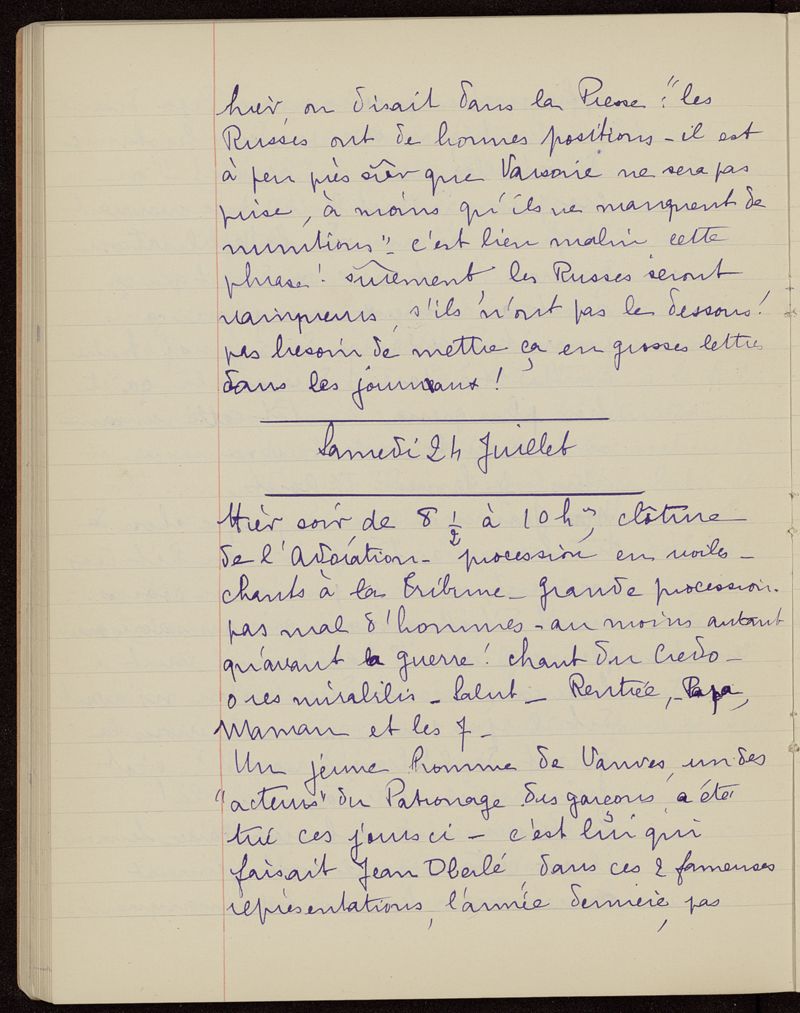 hier, on disait dans la Presse : "les
Russes ont de bonnes positions - il est
à peu près sûr que Varsovie ne sera pas
prise, à moins qu'ils ne manquent de
munitions" - c'est bien malin cette
phrase ! sûrement, les Russes seront
vainqueurs, s'ils n'ont pas le dessous !
pas besoin de mettre ça en grosses lettres
dans les journaux !
Samedi 24 Juillet
Hier soir, de 8 1/2 à 10 h, clôture
de l'Adoration - procession en voiles -
chants à la tribune - grande procession.
pas mal d'hommes - au moins autant
qu'avant la guerre ! chant du Credo -
o res mirabilis - Salut - Rentrée, - Papa,
Maman et les 7 -
Un jeune homme de Vanves, un des
"acteurs" du Patronage des garçons, a été
tué ces jours ci - c'est lui qui
faisait Jean Oberlé dans ces 2 fameuses
représentations, l'année dernière, pas